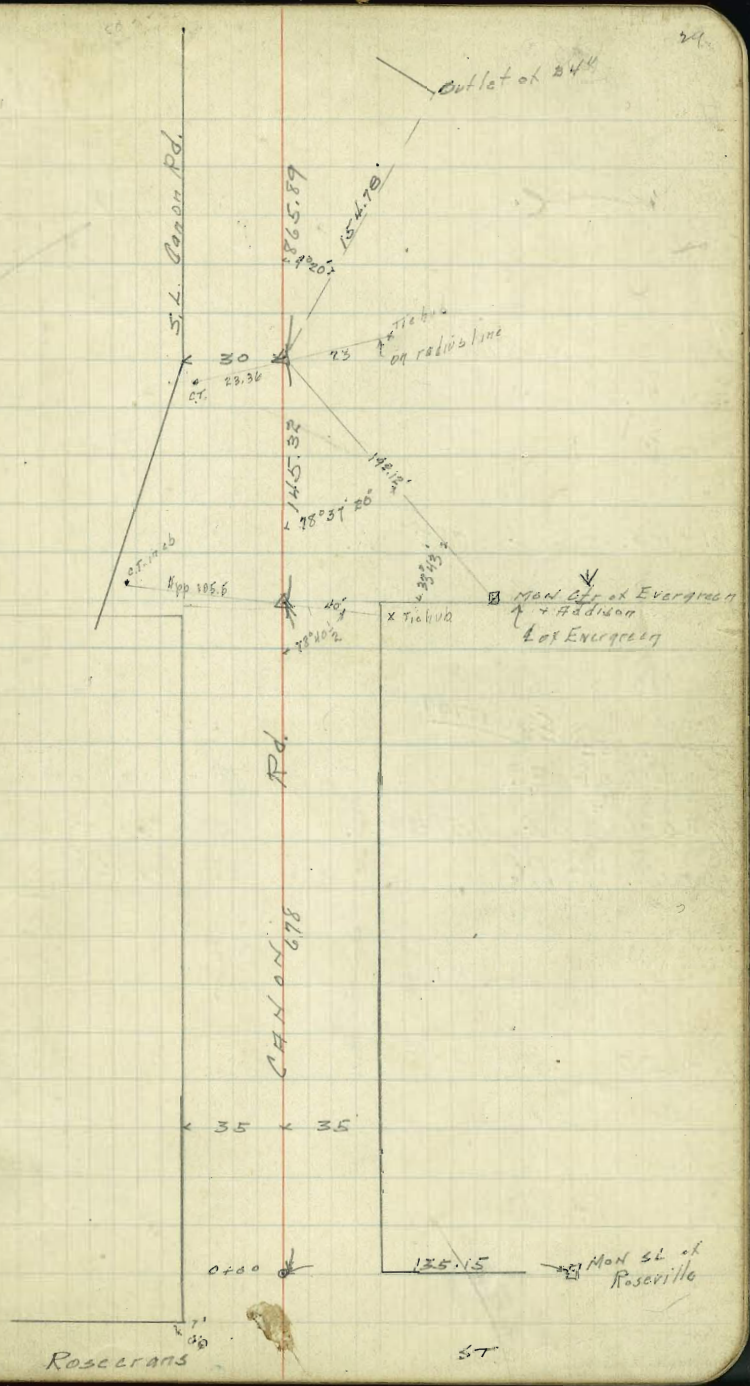 29
Outlet of 24"
S. L. Canon Rd.
865.89
154.78'
4°20'
Tie hub
on radius line
30
73
C.T.
23.36
145.32
142.12'
78°37' 20"
39°43'
C.T. in cb
App 105.5
40'
x Tie hub
78°40'½
Mon Ctr of Evergreen
+ Addison
℄ of Evergreen
CANON Rd.
678
35 35
0+00
135.15
Mon SL of
Roseville
Rosecrans ST